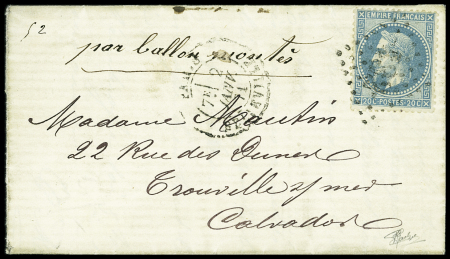 52
par ballon montés
EMPIRE FRANÇAIS
20C POSTES 20C
2
JANV
71
Madame Mautin
22 Rue des Dunes
Trouville s/ mer
Calvados